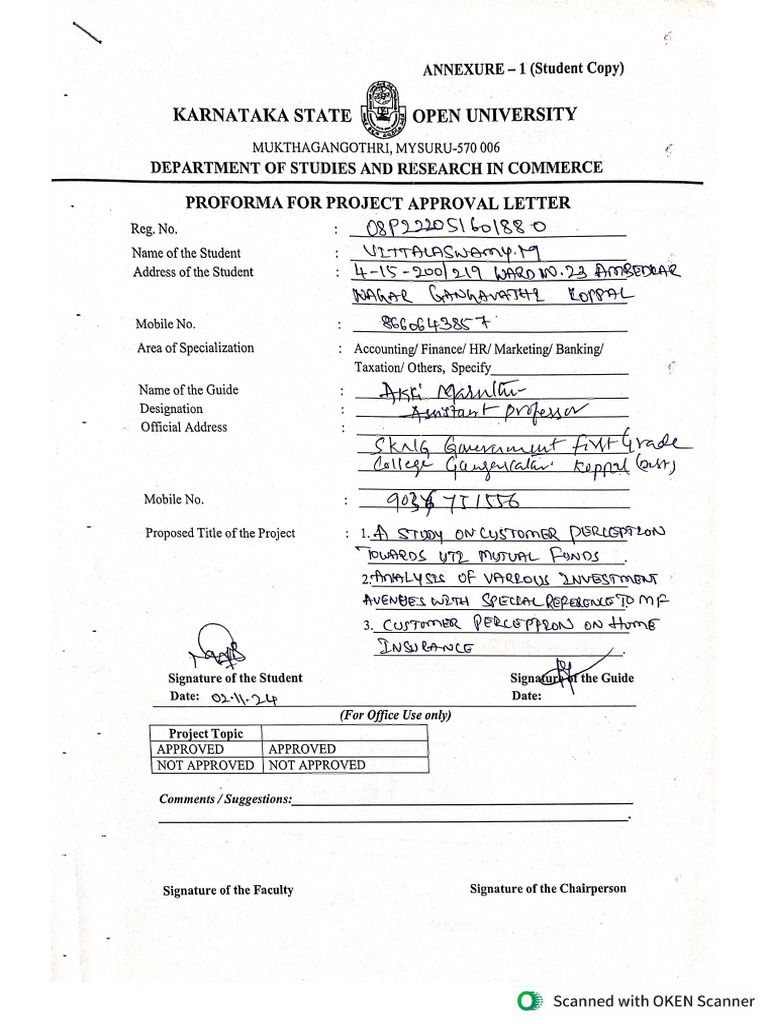 ANNEXURE – 1 (Student Copy)
KARNATAKA STATE OPEN UNIVERSITY
MUKTHAGANGOTHRI, MYSURU-570 006
DEPARTMENT OF STUDIES AND RESEARCH IN COMMERCE
PROFORMA FOR PROJECT APPROVAL LETTER
Reg. No. : 08P22205160188 0
Name of the Student : VITTALASWAMY.M
Address of the Student : 4-15-200/219 WARD NO.23 AMBEDKAR
NAGAR GANGAVATHI KOPPAL
Mobile No. : 8660643857
Area of Specialization : Accounting/ Finance/ HR/ Marketing/ Banking/
Taxation/ Others, Specify
Name of the Guide : Akki Maruthi
Designation : Assistant professor
Official Address :
SKNG Government first Grade
College Koppal (Dist)
Mobile No. : 751556
Proposed Title of the Project : 1. A STUDY ON CUSTOMER PERCEPTION
TOWARDS UTI MUTUAL FUNDS .
2. ANALYSIS OF VARIOUS INVESTMENT
AVENUES WITH SPECIAL REFERENCE TO MF
3. CUSTOMER PERCEPTION ON HOME
INSURANCE .
Signature of the Student Signature of the Guide
Date: 02.11.24 Date:
(For Office Use only)
Project Topic
APPROVED APPROVED
NOT APPROVED NOT APPROVED
Comments / Suggestions:
Signature of the Faculty Signature of the Chairperson
Scanned with OKEN Scanner